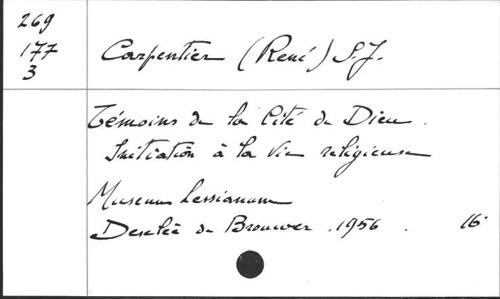 269
177
3
Carpentier (René) S.J.
Témoins de la Cité de Dieu.
Initiation à la Vie religieuse
Museum Lessianum
Desclée de Brouwer. 1956. 16°